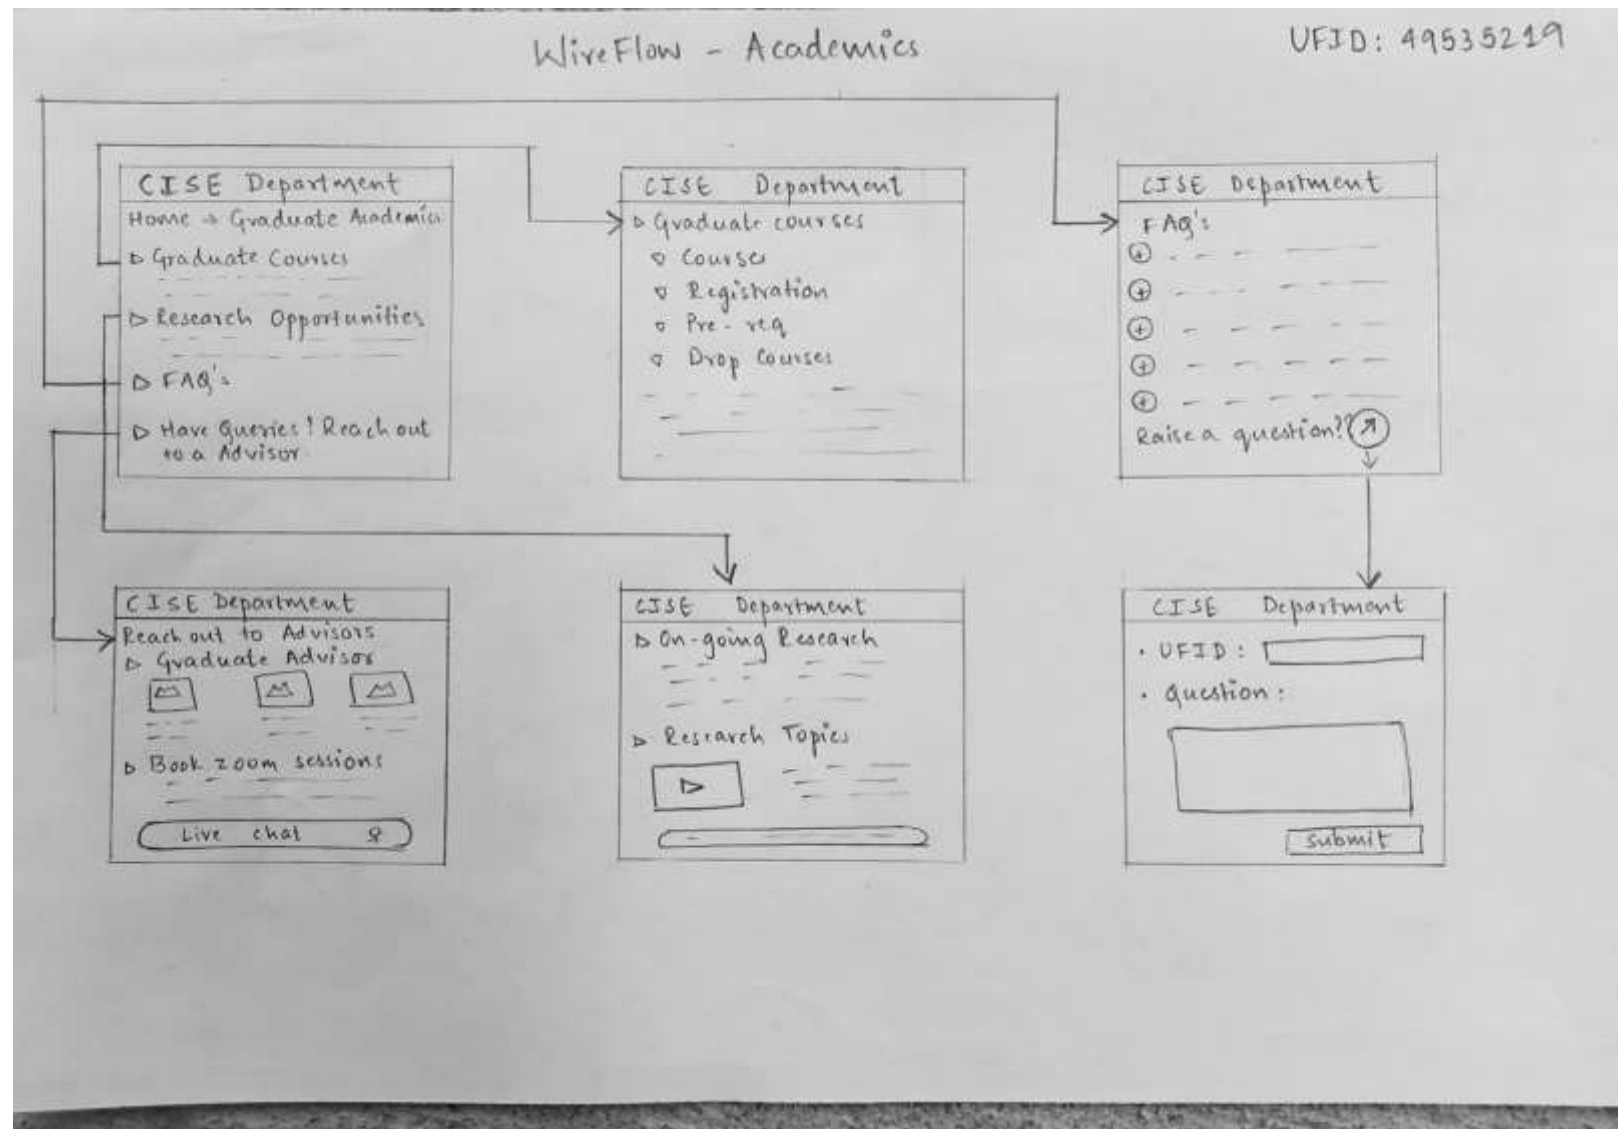 WireFlow - Academics
UFID: 49535219
CISE Department
Home → Graduate Academics
Graduate Courses
Research Opportunities
FAQ's
Have Queries? Reach out
to a Advisor
CISE Department
Graduate courses
Courses
Registration
Pre-req
Drop Courses
CISE Department
FAQ's
Raise a question??
CISE Department
Reach out to Advisors
Graduate Advisor
Book zoom sessions
Live chat
CISE Department
On-going Research
Research Topics
CISE Department
• UFID :
• Question :
Submit